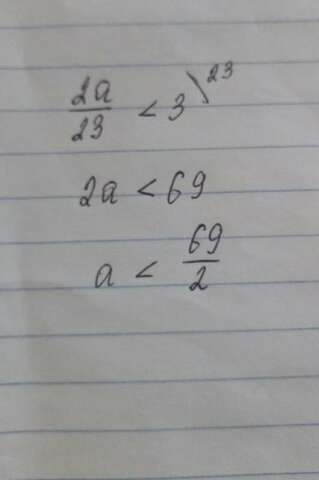 2a/23 < 3 \ 23
2a < 69
a < 69/2